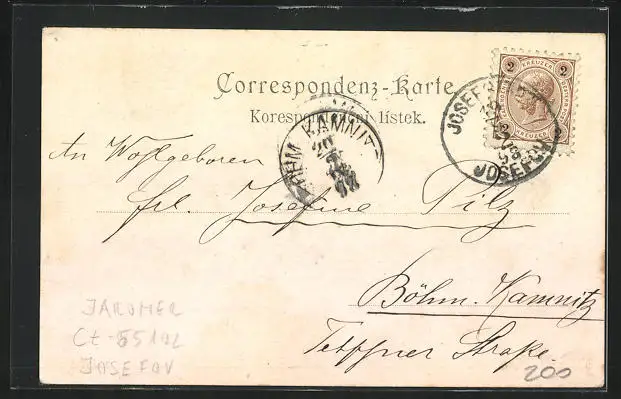 Correspondenz-Karte
Korespondenční lístek.
2 KREUZER 2
JOSEFOV
JOSEFOV
KAMNITZ
An Wohlgeboren
Frl. Josefine Pilz
Böhm. Kamnitz
Straße.
JAROMER
Ct-55102
JOSEFOV
200